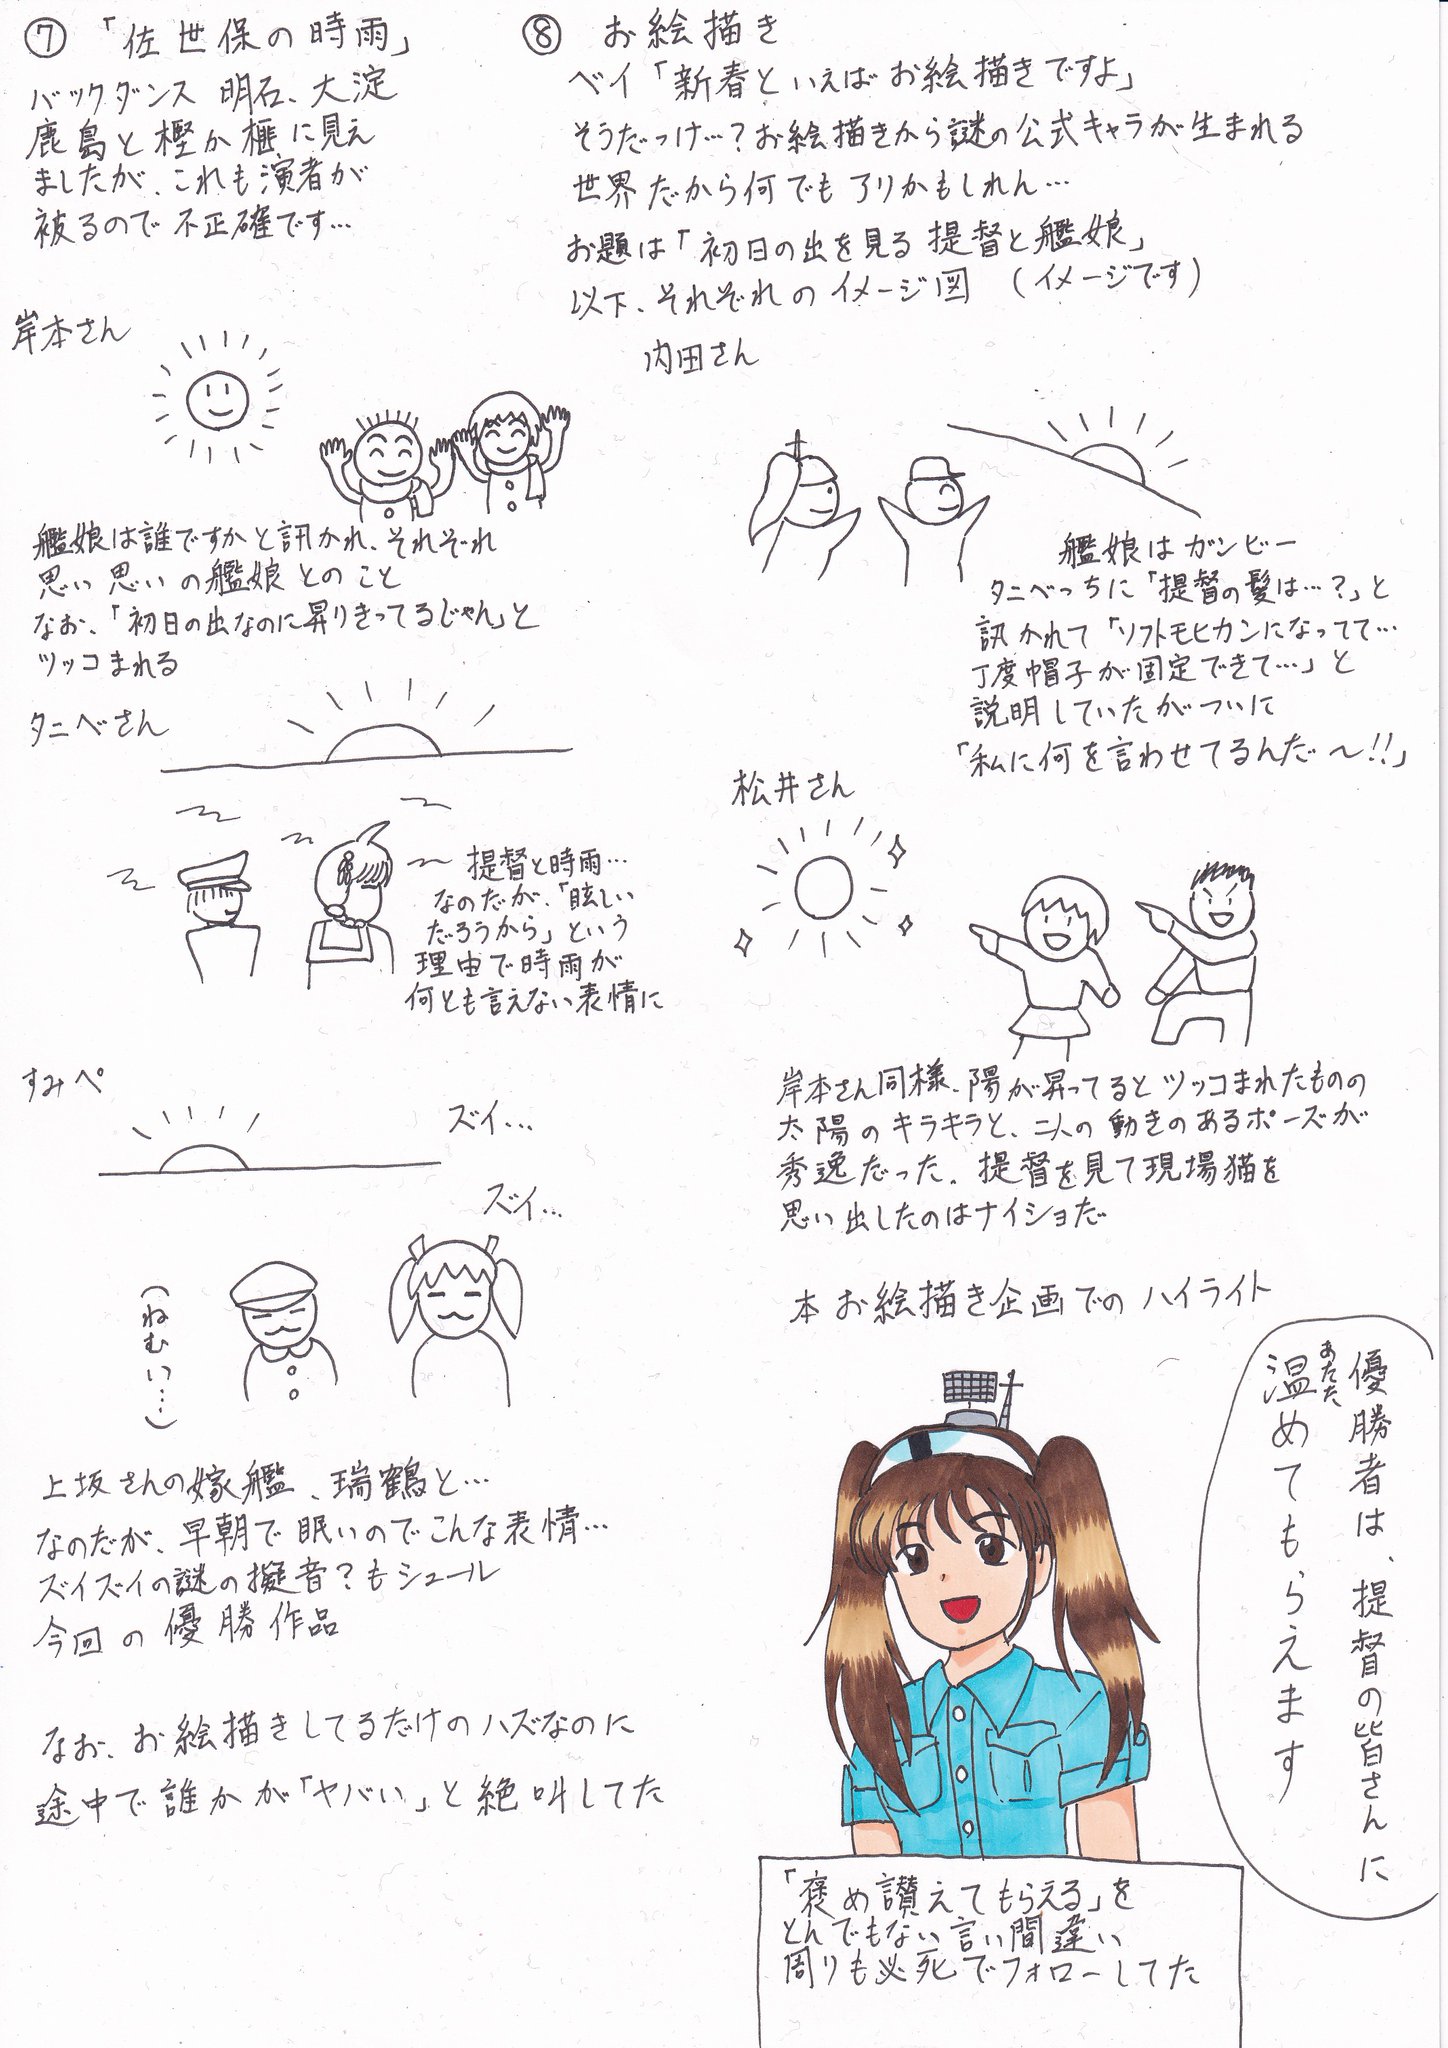 ⑦ 「佐世保の時雨」
バックダンス 明石、大淀
鹿島と樫か榧に見え
ましたが、これも演者が
被るので不正確です…
⑧ お絵描き
ベイ「新春といえばお絵描きですよ」
そうだっけ…?お絵描きから謎の公式キャラが生まれる
世界だから何でもアリかもしれん…
お題は「初日の出を見る提督と艦娘」
以下、それぞれのイメージ図 (イメージです)
岸本さん
艦娘は誰ですかと訊かれ、それぞれ
思い思いの艦娘とのこと
なお、「初日の出なのに昇りきってるじゃん」と
ツッコまれる
内田さん
艦娘はガンビー
タニベっちに「提督の髪は…?」と
訊かれて「ソフトモヒカンになってて…
丁度帽子が固定できて…」と
説明していたがついに
「私に何を言わせてるんだ〜!!」
タニベさん
提督と時雨…
なのだが、「眩しい
だろうから」という
理由で時雨が
何とも言えない表情に
松井さん
岸本さん同様、陽が昇ってるとツッコまれたものの
太陽のキラキラと、二人の動きのあるポーズが
秀逸だった。提督を見て現場猫を
思い出したのはナイショだ
すみぺ
ズイ…
ズイ…
(ねむい…)
上坂さんの嫁艦、瑞鶴と…
なのだが、早朝で眠いのでこんな表情…
ズイズイの謎の擬音?もシュール
今回の優勝作品
なお、お絵描きしてるだけのハズなのに
途中で誰かが「ヤバい」と絶叫してた
本お絵描き企画でのハイライト
優勝者は、提督の皆さんに
温めてもらえます
あたた
「褒め讃えてもらえる」を
とんでもない言い間違い
周りも必死でフォローしてた